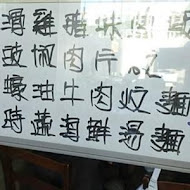 滑雞豬
豉椒肉片
蠔油牛肉炆麵
時蔬海鮮湯麵